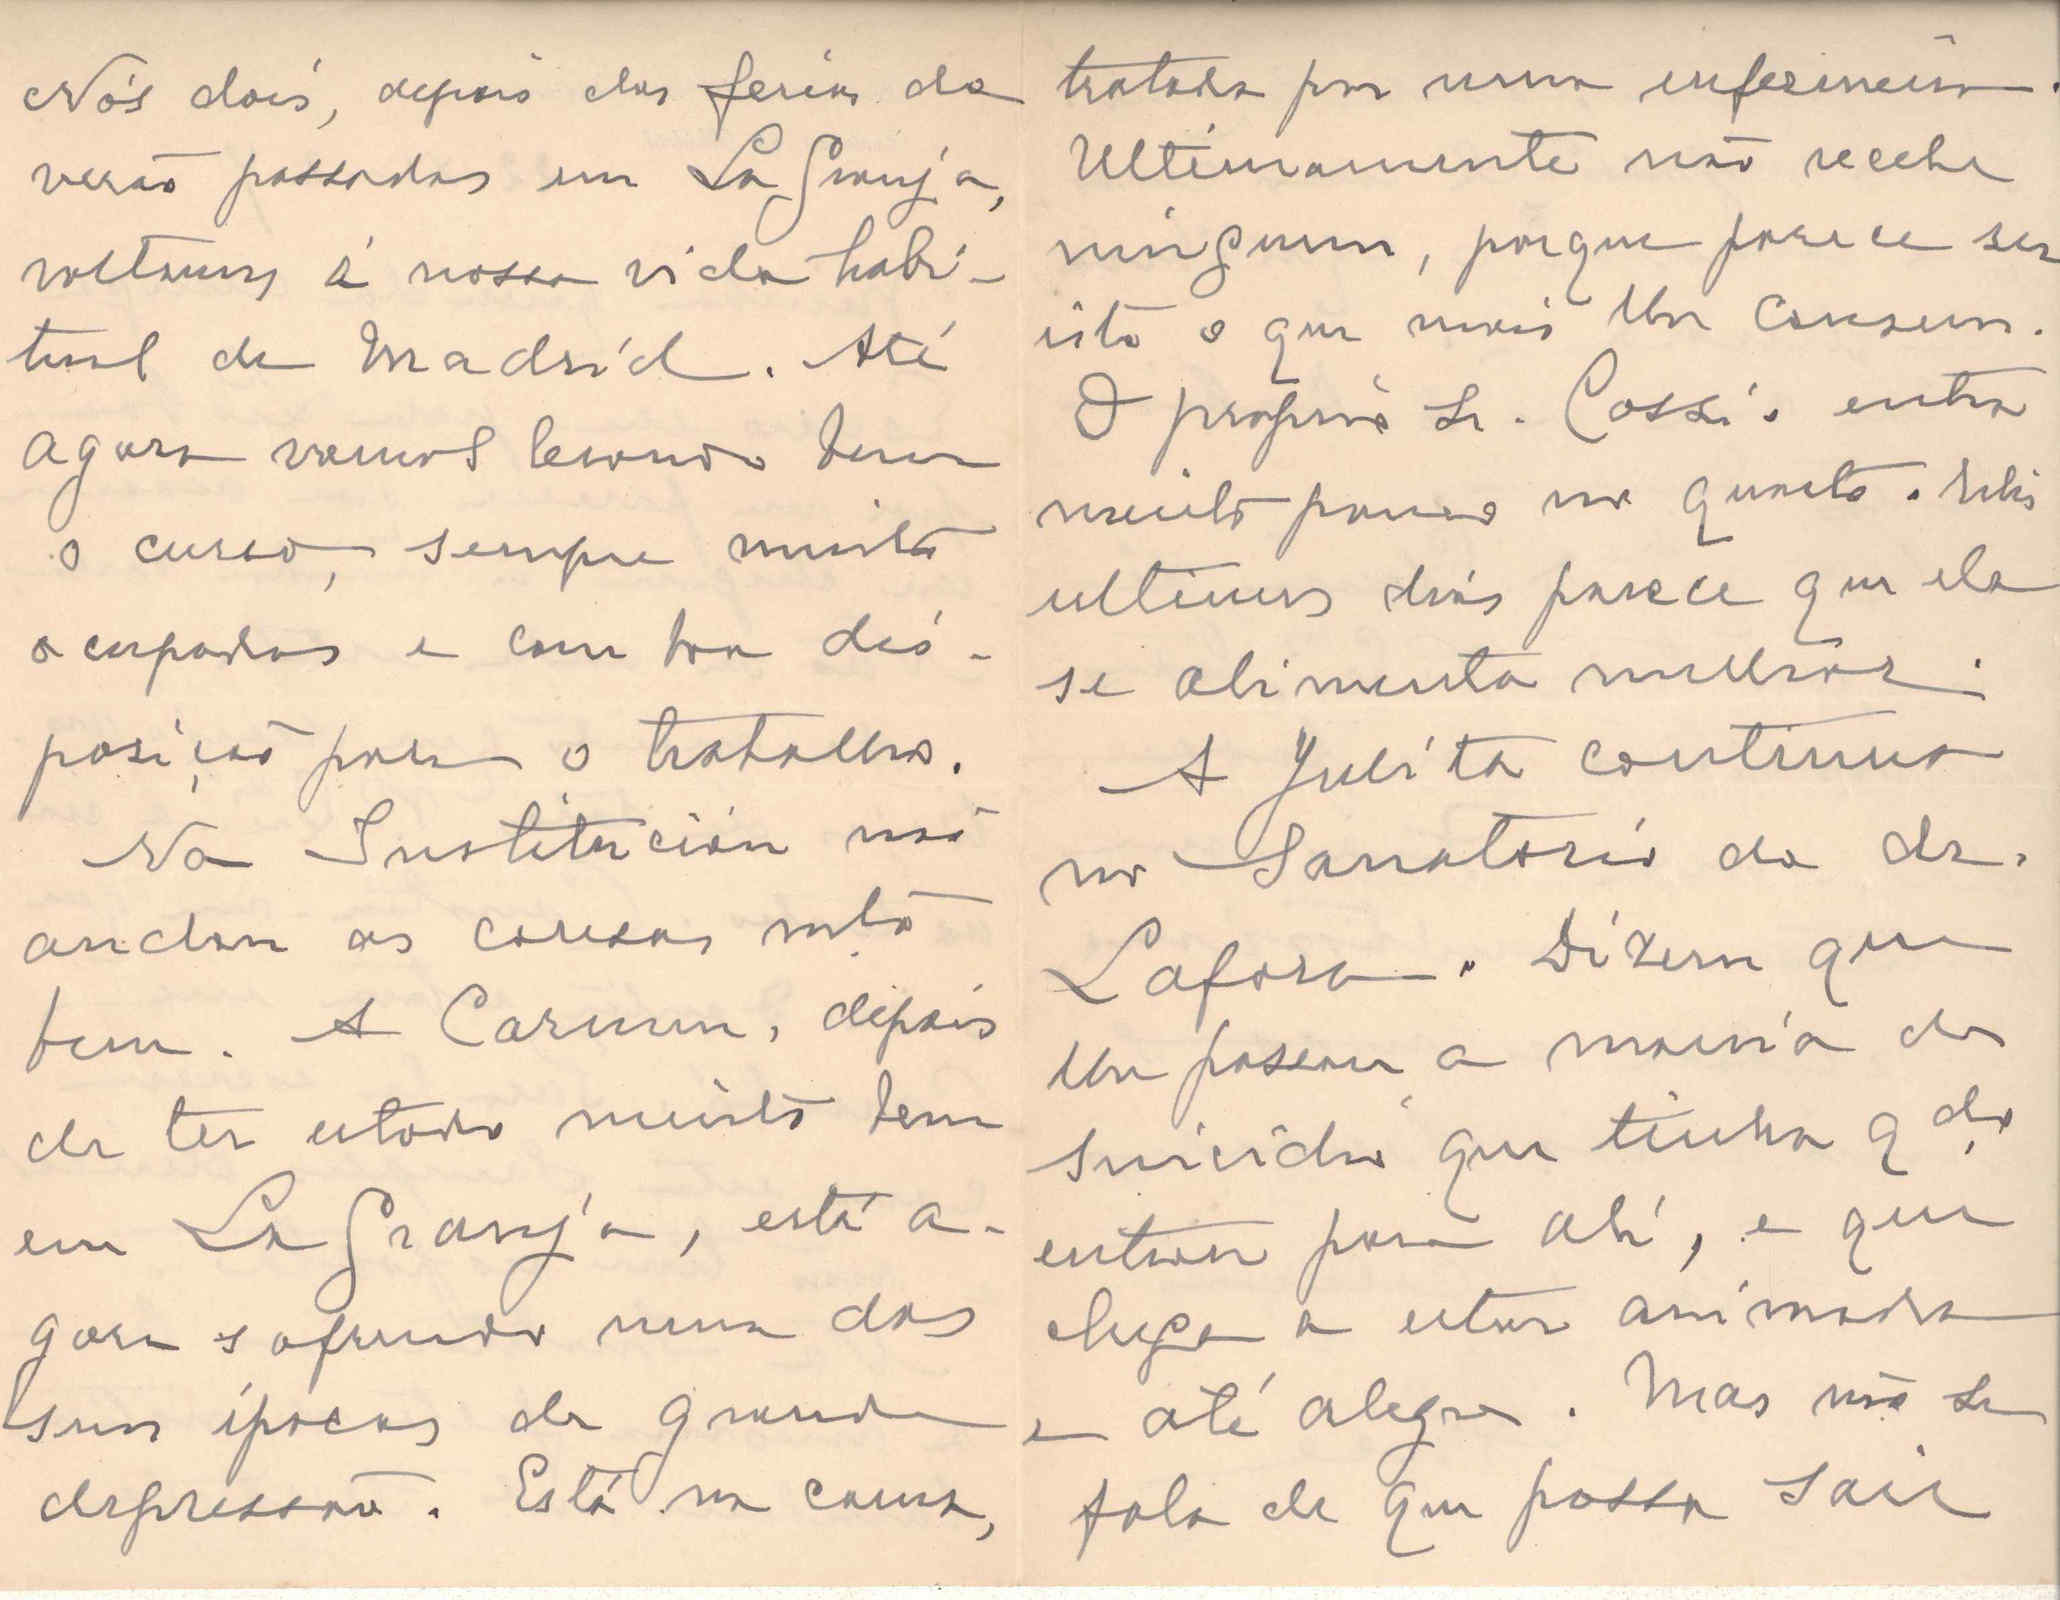 Nós dois, depois das ferias do
verão passadas em La Granja,
voltamos á nossa vida habi-
tual de Madrid. Até
agora vamos levando bem
o curso, sempre muito
ocupados e com boa dis-
posição para o trabalho.
Na Institución não
andam as coisas mto
bem. A Carmen, depois
de ter estado muito bem
em La Granja, está a-
gora sofrendo uma das
suas épocas de grande
depressão. Está na cama,
tratada por uma enfermeira.
Ultimamente não recebe
ninguem, porque parece ser
isto o que mais lhe cansa.
O proprio Sr. Cossío entra
muito pouco no quarto. Nestes
ultimos dias parece que ela
se alimenta melhor.
A Julita continua
no Sanatorio do dr.
Lafora. Dizem que
lhe passou a mania do
suicidio que tinha qdo
entrou para ali, e que
chega a estar animada
e até alegre. Mas não se
fala de que possa sair